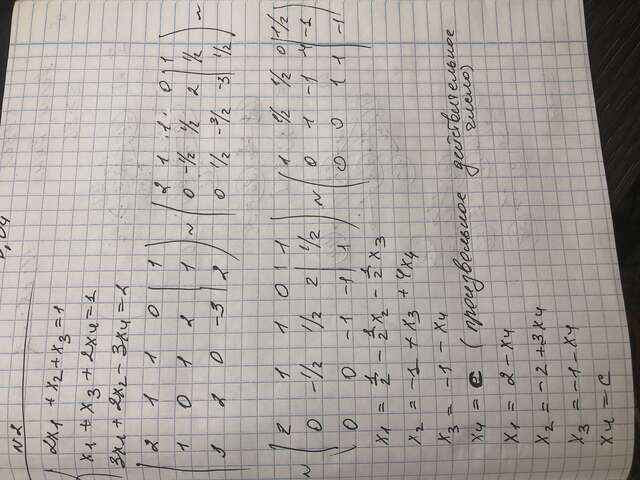 N2
2x1 + x2 + x3 = 1
x1 + x3 + 2x4 = 1
3x1 + 2x2 - 3x4 = 2
( 2 1 1 0 | 1 ) ~ ( 2 1 1 0 | 1 ) ~
1 0 1 2 | 1 0 -1/2 1/2 2 | 1/2
3 2 0 -3 | 2 0 1/2 -3/2 -3 | 1/2
~ ( 2 1 1 0 | 1 ) ~ ( 1 1/2 1/2 0 | 1/2 )
0 -1/2 1/2 2 | 1/2 0 1 -1 -4 | -1
0 0 -1 -1 | 1 0 0 1 1 | -1
x1 = 1/2 - 1/2 x2 - 1/2 x3
x2 = -1 + x3 + 4x4
x3 = -1 - x4
x4 = c (произвольное действительное
число)
x1 = 2 - x4
x2 = -2 + 3x4
x3 = -1 - x4
x4 = c